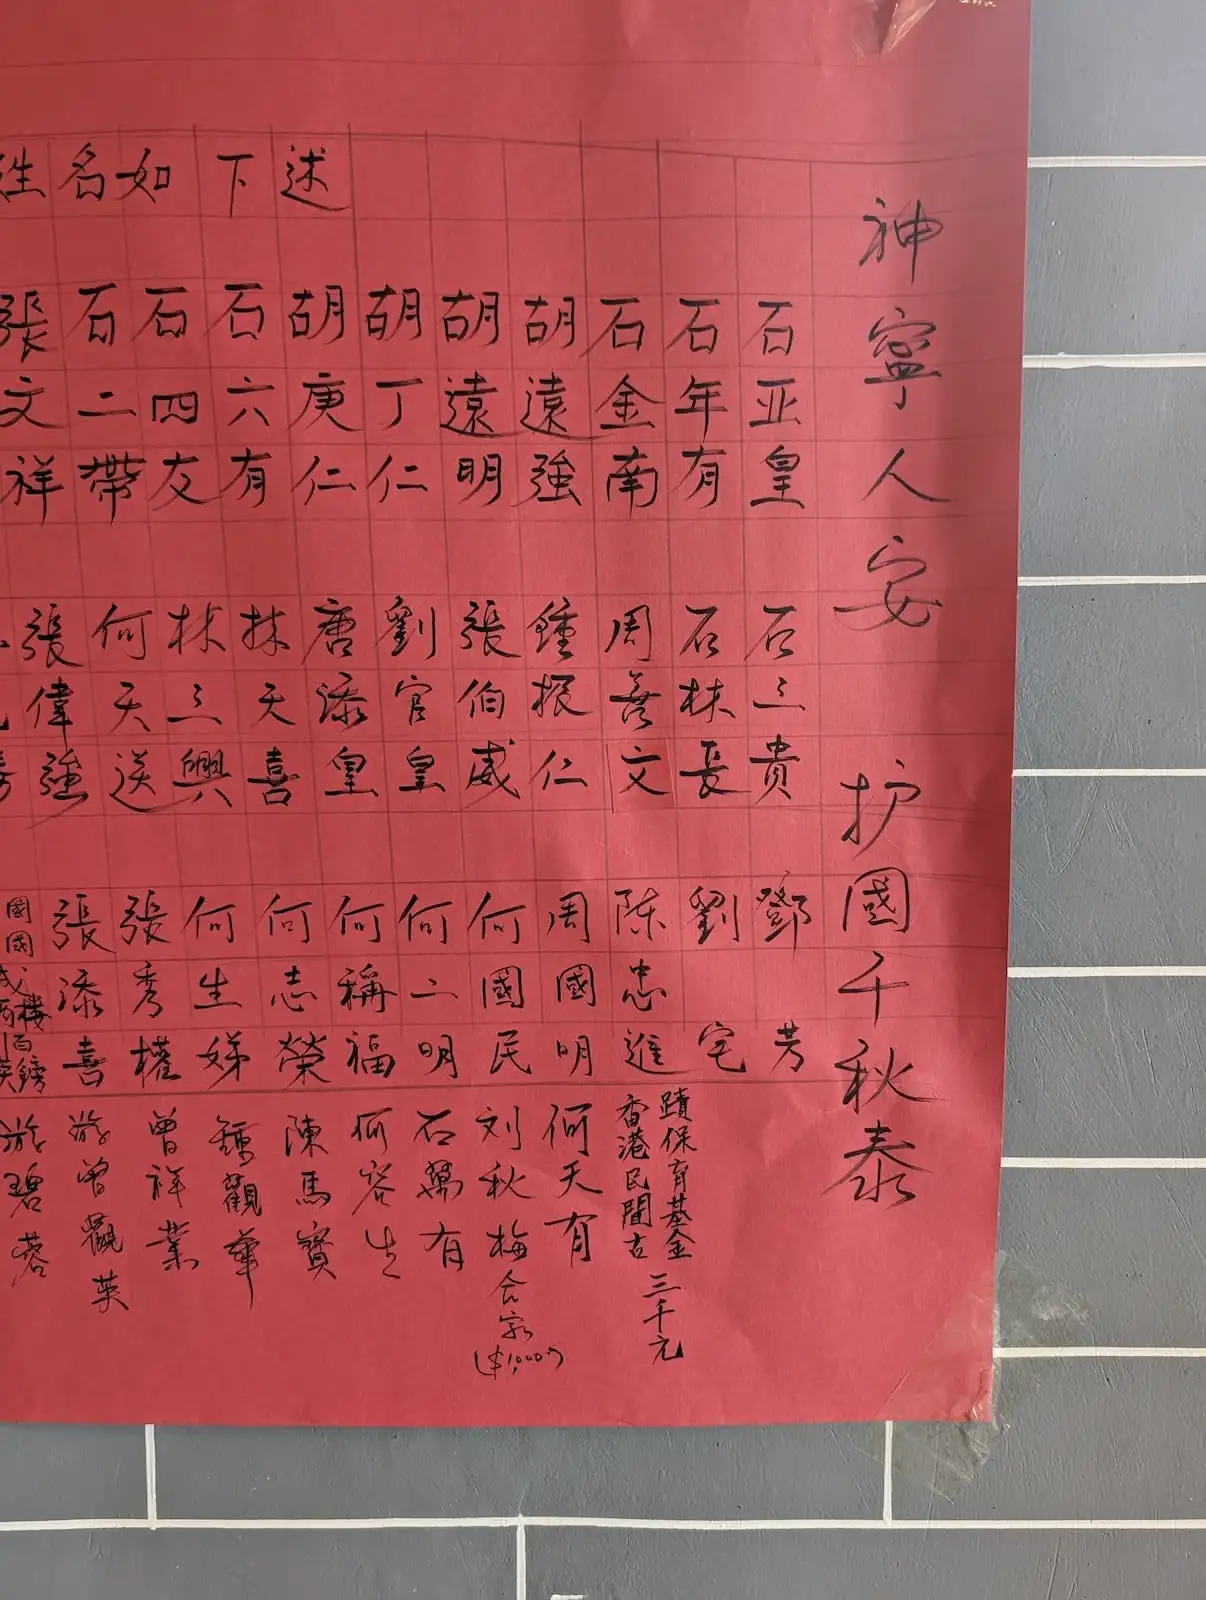 神寧人安 护國千秋泰
姓名如下述
石亚皇
石年有
石金南
胡遠強
胡遠明
胡丁仁
胡庚仁
石六有
石四友
石二帶
張文祥
石三貴
石林長
周善文
鍾振仁
張伯威
劉官皇
唐添皇
林天喜
林三興
何天送
張偉強
鄧芳
劉宅
陈忠進
周國明
何國民
何二明
何稱福
何志榮
何生娣
張秀權
張添喜
香港民間古
蹟保育基金
三千元
何天有
刘秋梅合家
($1,000)
石萬有
何容生
陳馬寶
鍾觀華
曾祥業
游曾觀英
游碧蓉